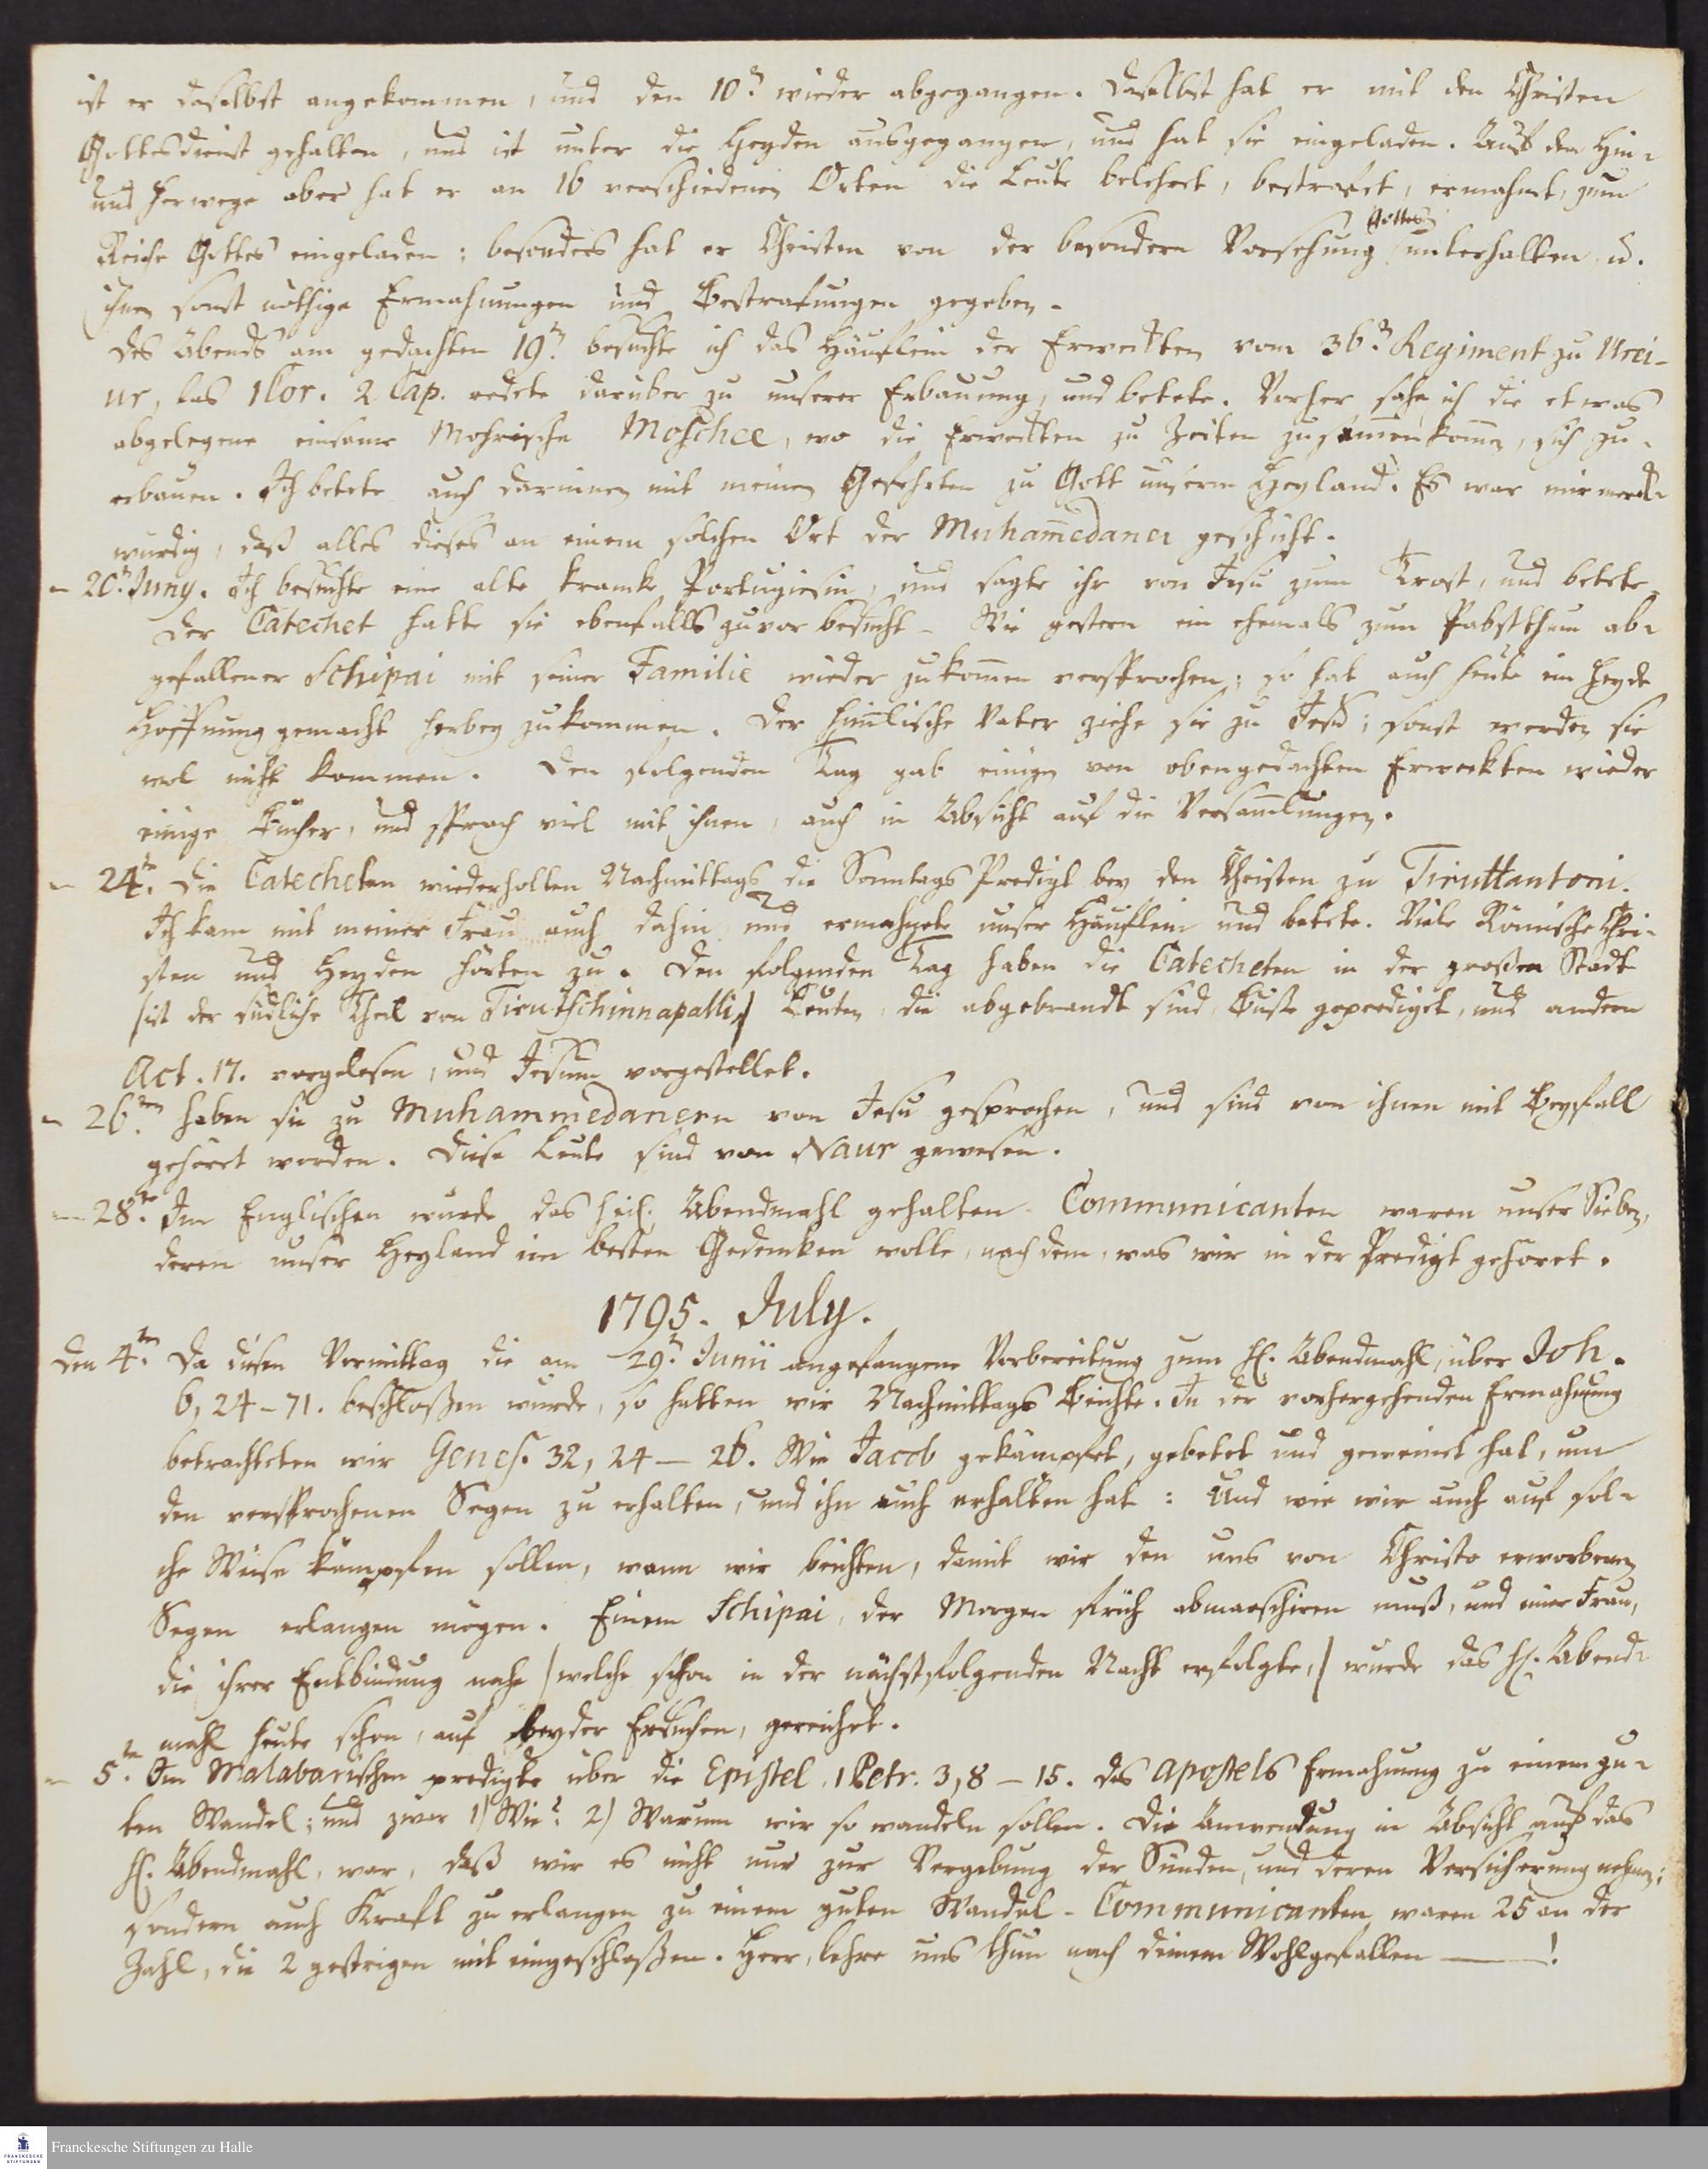 ist er daselbst angekommen, und den 10.n wieder abgegangen. Daselbst hat er mit den Christen
Gottesdienst gehalten, und ist unter die Heyden ausgegangen, und hat sie eingeladen. Auf dem Hin-
und Herwege aber hat er an 16 verschiedenen Orten die Leute belehret, bestrafet, ermahnet, zum
Reiche Gottes eingeladen; besonders hat er Christen von der besondern Vorsehung Gottes unterhalten, u.
ihnen sonst nöthige Ermahnungen und Bestrafungen gegeben.
Des Abends am gedachten 19.n besuchte ich das Häuflein der Erweckten vom 36.n Regiment zu Urei-
ur, las 1 Cor. 2 Cap. redete darüber zu unserer Erbauung, und betete. Vorher sahe ich die etwas
abgelegene einsame Mohrische Moschee, wo die Erweckten zu Zeiten zusam̅enkom̅en, sich zu
erbauen. Ich betete auch darinnen mit meinen Gefehrten zu Gott unserm Heyland. Es war mir merck-
würdig, daß alles dieses an einem solchen Ort der Muham̅edaner geschicht.
– 20.n Juny. Ich besuchte eine alte krancke Portugiesin, und sagte ihr von Jesu zum Trost, und betete.
Der Catechet hatte sie ebenfalls zuvor besucht – Wie gestern ein ehemals zum Pabstthum ab-
gefallener Schipai mit seiner Familie wieder zu kom̅en versprochen; so hat auch heute ein Heyde
Hoffnung gemacht herbey zu kommen. Der him̅lische Vater ziehe sie zu Jesu; sonst werden sie
wol nicht kommen. Den folgenden Tag gab einigen von obengedachten Erweckten wieder
einige Bücher, und sprach viel mit ihnen, auch in Absicht auf die Versam̅lungen.
– 24.n Die Catecheten wiederholten Nachmittags die Sonntags Predigt bey den Christen zu Tiruttantoni.
Ich kam mit meiner Frau auch dahin und ermahnete unser Häuflein und betete. Viele Römische Chri-
sten und Heyden hörten zu. Den folgenden Tag haben die Catecheten in der großen Stadt
/ist der südliche Theil von Tirutschinnapalli,/ Leuten, die abgebrandt sind, Buße geprediget, und andern
Act. 17. vorgelesen, und Jesum vorgestellet.
– 26.ten haben sie zu Muhammedanern von Jesu gesprochen, und sind von ihnen mit Beyfall
gehöret worden. Diese Leute sind von Naur gewesen.
– 28.ten Im Englischen wurde das heil. Abendmahl gehalten – Communicanten waren unser Sieben,
deren unser Heyland im besten Gedencken wolle, nach dem, was wir in der Predigt gehöret.
1795. July.
Den 4.ten Da diesen Vormittag die am 29.n Junii angefangene Vorbereitung zum hl. Abendmahl, über Joh.
6, 24–71. beschloßen wurde, so hatten wir Nachmittags Beichte. In der vorhergehenden Ermahnung
betrachteten wir Genes. 32, 24–26. Wie Jacob gekämpfet, gebetet und geweinet hat, um
den versprochenen Segen zu erhalten, und ihn auch erhalten hat: Und wie wir auch auf sol-
che Weise kämpfen sollen, wenn wir beichten, damit wir den uns von Christo erworbenen
Segen erlangen mögen. Einem Schipai, der Morgen früh abmarschiren muß, und einer Frau,
die ihrer Entbindung nahe /welche schon in der nächstfolgenden Nacht erfolgte,/ wurde das hl. Abend-
mahl heute schon, auf beyder Ersuchen, gereichet.
– 5.ten Im Malabarischen predigte über die Epistel 1 Petr. 3, 8–15. des Apostels Ermahnung zu einem gu-
ten Wandel; und zwar 1) Wie? 2) Warum wir so wandeln sollen. Die Anwendung in Absicht auf das
hl. Abendmahl, war, daß wir es nicht nur zur Vergebung der Sünden, und deren Versicherung nehmen;
sondern auch Kraft zu erlangen zu einem guten Wandel – Communicanten waren 25 an der
Zahl, die 2 gestrigen mit eingeschloßen. Herr, lehre uns thun nach deinem Wohlgefallen —!
FRANCKESCHE STIFTUNGEN
Franckesche Stiftungen zu Halle